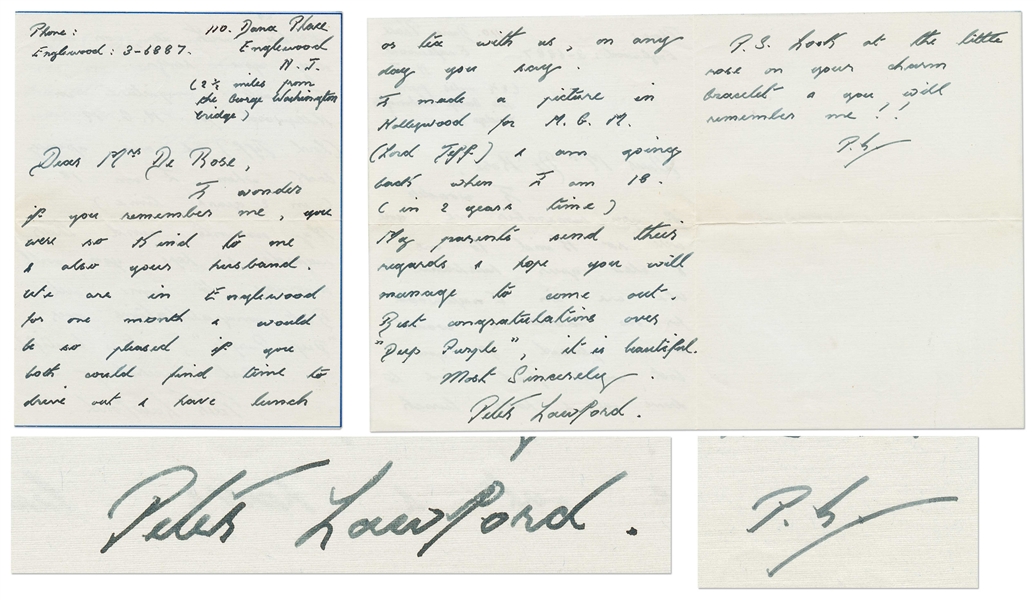 Phone: 110. Dana Place
Englewood: 3-6887. Englewood
N. J.
(2 ½ miles from
the George Washington
bridge)
Dear Mrs De Rose,
I wonder
if you remember me, you
were so kind to me
& also your husband.
We are in Englewood
for one month & would
be so pleased if you
both could find time to
drive out & have lunch
or tea with us, on any
day you say.
I made a picture in
Hollywood for M. G. M.
(Lord Jeff) & am going
back when I am 18.
(in 2 years time)
My parents send their
regards & hope you will
manage to come out.
Best congratulations over
"Deep Purple", it is beautiful.
Most Sincerely.
Peter Lawford.
P.S. Look at the little
rose on your charm
bracelet & you will
remember me!!
P. L.
Peter Lawford.
P. L.